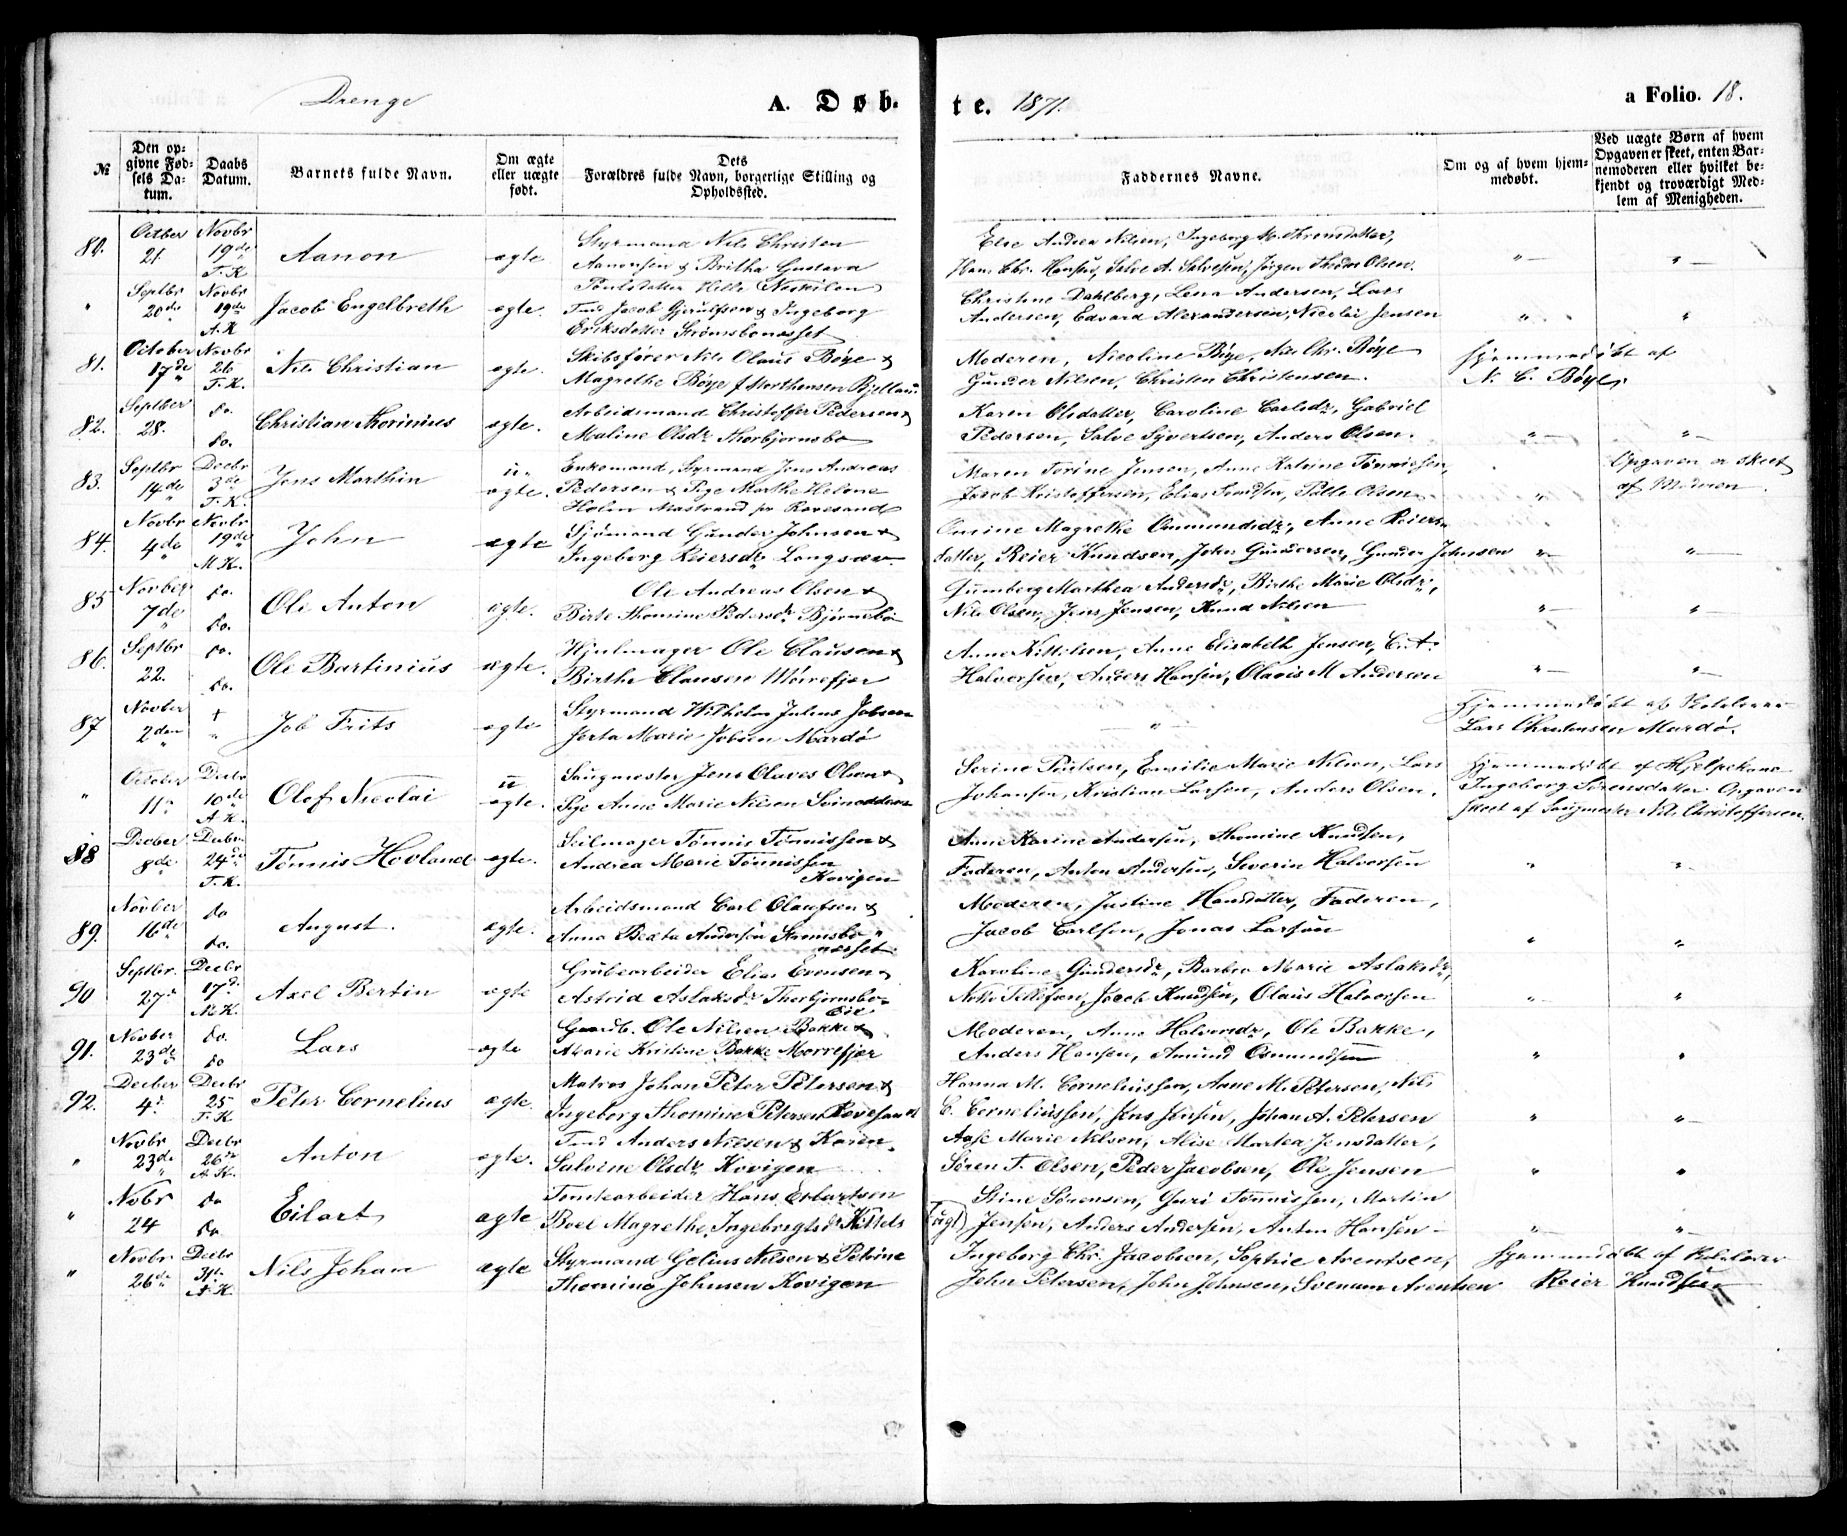 Drenge
A. Døb-
te. 1871.
a Folio. 18.
№
Den op-
givne Fød-
sels Da-
tum.
Daabs
Datum.
Barnets fulde Navn.
Om ægte
eller uægte
født.
Dets
Forældres fulde Navn, borgerlige Stilling og
Opholdssted.
Faddernes Navne.
Om og af hvem hjem-
medøbt.
Ved uægte Børn af hvem
Opgaven er skeet, enten Bar-
nemoderen eller hvilket be-
kjendt og troværdigt Med-
lem af Menigheden.
80. Octber 21 Novbr 19de T. K. Aanon ægte Styrmand Nils Christen
Aanonsen & Britha Gustava
Paulsdatter Helle Neskilen
Else Andrea Nilsen, Ingeborg M. Thomsdatter,
Hans Chr. Hansen, Salve A. Salvesen, Jørgen Olsen. " "
" Septbr 20de Novbr 19de A. K. Jacob Engelbreth ægte. Tmd Jacob Gjerulfsen & Ingeborg
Eriksdatter Strømsbonæsset
Christine Dahlberg, Lena Andersen, Lars
Andersen, Edvard Alexandersen, Nicolai Jensen " "
81. October 17de Novbr 26 T. K. Nils Christian ægte. Skibsfører Nils Olaus Bøye &
Magrethe Bøye f Morthensen
Moderen, Nicoline Bøye, Chr. Bøye
Gunder Nilsen, Christen Christensen.
Hjemmedøbt af
N. C. Bøye,
82. Septber 28. do. do. Christian Thorinius ægte. Arbeidsmand Christoffer Pedersen &
Maline Olsdr Thorbjørnsbo
Karen Olsdatter, Caroline Carlsdr, Gabriel
Pedersen, Salve Syvertsen, Anders Olsen. " "
83. Septbr 14de Decbr 3de T. K. Jens Marthin u-
ægte. Enkemand, Styrmand Jens Andreas
Pedersen & Pige Marthe Helene
Holm Mastrand pr Revesand
Maren Torine Jensen, Anne Katrine Tønnesen,
Jacob Kristoffersen, Elias Knudsen, Palle Olsen. "
Opgaven er skeet
af Moderen.
84. Novbr 4de Novbr 19de M. K. John ægte Sjømand Gunder Johnsen &
Ingeborg Reiersdr Langsæv.
Omine Magrethe Ommundsdr, Anne Reiers-
datter, Reier Knudsen, John Gundersen, Gunder Johnsen " "
85 Novber 7de do. do. Ole Anton ægte. Ole Andreas Olsen &
Birte Thomine Pedersdr Bjørnebo
Gumborg Marthea Andersdr, Birthe Marie Olsdr,
Nils Olsen, Jens Jensen, Knud Nilsen " "
86. Septbr 22. do. do. Ole Bertinius ægte. Hjulmager Ole Clausen &
Birthe Clausen Mørefjær
Anne Kittelsen, Anne Elisabeth Jensen,
Halvorsen, Anders Hansen, Olavis M Andersen " "
87 Novber 2den † " Job Frits ægte Styrmand Wilhelm Julius Jobsen
Marie Jobsen Mardø "
Hjemmedøbt af Skolelærer
Lars Christensen Mardø.
" October 11. Decbr 10de A. K. Olof Nicolai u
ægte. Saugmester Jens Olaves Olsen &
Pige Anne Marie Nilsen Svinodden
Serine Poulsen, Emilie Marie Nilsen, Lars
Johansen, Kristian Larsen, Anders Olsen.
Hjemmedøbt af Hjelpekone
Ingeborg Sørensdatter Opgaven
skeet af Saugmester Nils Christoffersen.
88 Decber 8de Decbr 24de T. K. Tønnis Hovland ægte. Seilmager Tønnis Tønnissen &
Andrea Marie Tønnissen
Kovigen
Anne Karine Andersen, Thomine Knudsen,
Faderen, Anton Andersen, Severin Halvorsen " "
89. Novber 16de do do. August. ægte. Arbeidsmand Carl Olaufsen &
Anna Beata Andersen Strømsbo-
næsset
Moderen, Justine Hansdatter, Faderen,
Jacob Carlsen, Jonas Larsen " "
90 Septbr. 27de Decbr 17de M. K. Axel Bertin ægte Grubearbeider Elias Evensen
Astrid Aslaksdr Thorbjørnsbo-
eie
Karoline Gundersdr, Barbro Marie Aslaksdr,
Nils Tellefsen, Jacob Knudsen, Olaus Halvorsen " "
91. Novber 23de do. do Lars ægte Gaardb. Ole Nilsen Bakke &
Marie Kristine Bakke Morrefjær
Moderen, Anne Halvorsdr, Ole Bakke,
Anders Hansen, Amund Osmundsen " "
92. Decber 4de Decbr 25 T. K. Peter Cornelius ægte. Matros Johan Peter Petersen &
Ingeborg Thomine Petersen Revesand
Hanna M. Corneliussen, Anne M. Petersen, Nils
C. Corneliussen, Jens Jensen, Johan A. Petersen " "
" Novbr 23de Decbr 26de A. K. Anton ægte. Tmd Anders Nilsen & Karen
Salvine Olsdr Kovigen
Aase Marie Nilsen, Alise Martea Jensdatter,
Søren T. Olsen, Peder Jacobsen, Ole Jensen " "
" Nobr 24 do do. Eilert ægte Tomtearbeider Hans Eilertsen
Boel Magrethe Ingebregtsdr Kittels
Stine Sørensen, Guri Tønnissen, Martin
Jensen, Anders Andersen, Anton Hansen " "
" Novbr 26de Decbr 31te A. K. Nils Johan ægte Styrmand Gelius Nilsen & Petrine
Thomine Johnsen Kovigen
Ingeborg Chr. Jacobsen, Sophie Arentsen,
John Petersen, John Johnsen, Svenum Arentsen
Hjemmedøbt af Skolelærer
Reier Knudsen